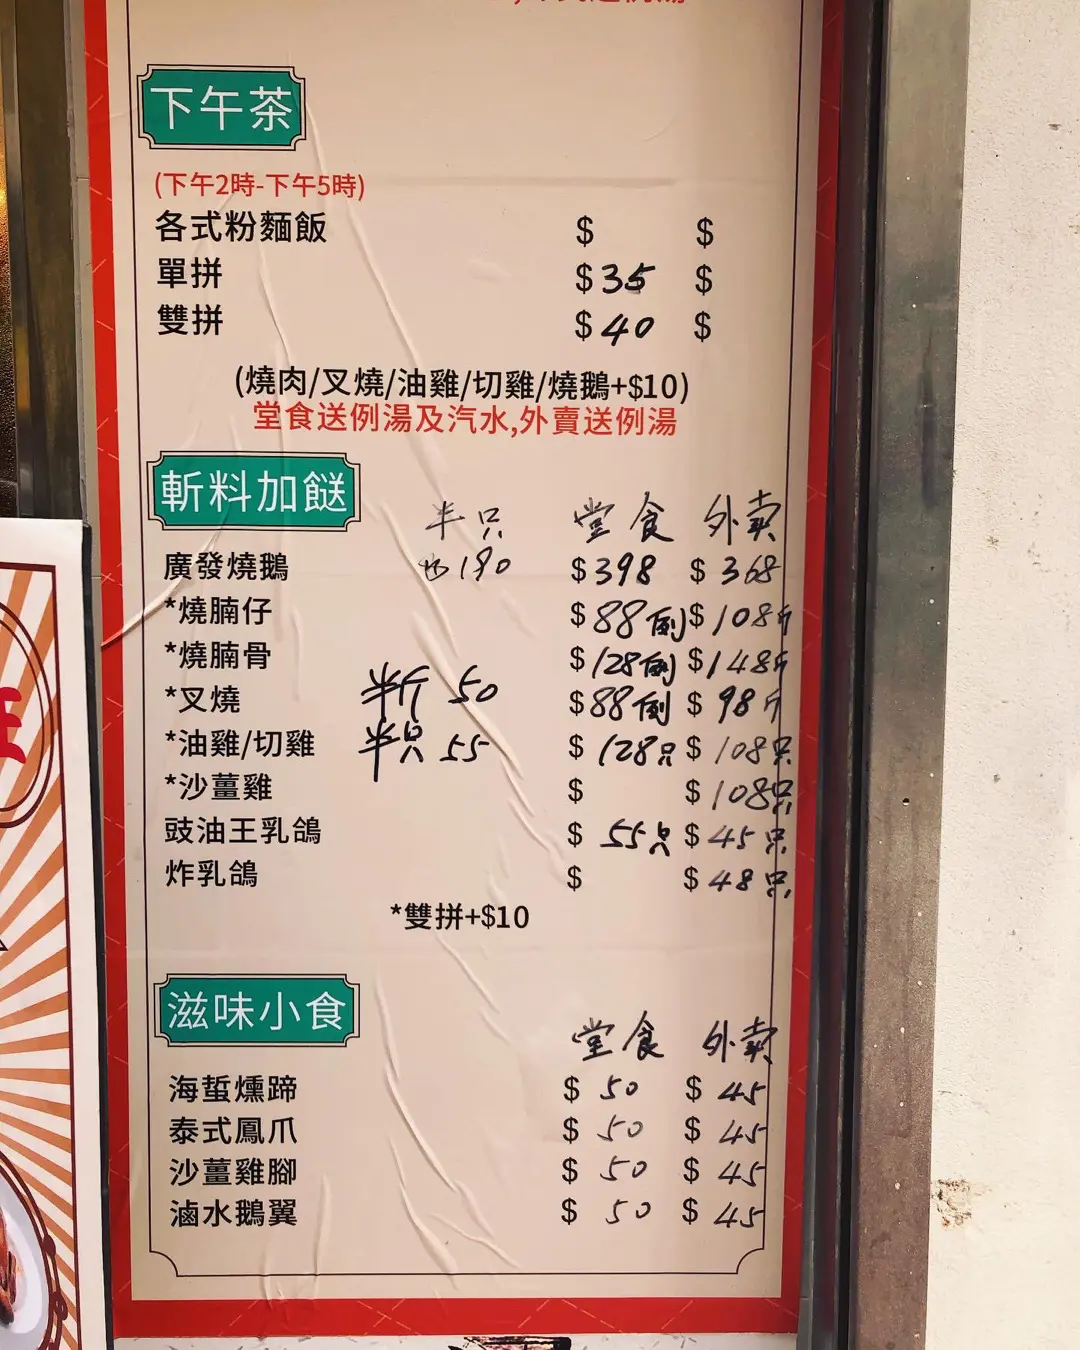 下午茶
(下午2時-下午5時)
各式粉麵飯 $ $
單拼 $35 $
雙拼 $40 $
(燒肉/叉燒/油雞/切雞/燒鵝+$10)
堂食送例湯及汽水,外賣送例湯
斬料加餸 半只 堂食 外卖
廣發燒鵝 190 $398 $368
*燒腩仔 $88例 $108斤
*燒腩骨 $128例 $148斤
*叉燒 半斤 50 $88例 $98斤
*油雞/切雞 半只 55 $128只 $108只
*沙薑雞 $ $108只
豉油王乳鴿 $55只 $45只
炸乳鴿 $ $48只
*雙拼+$10
滋味小食 堂食 外卖
海蜇燻蹄 $50 $45
泰式鳳爪 $50 $45
沙薑雞腳 $50 $45
滷水鵝翼 $50 $45